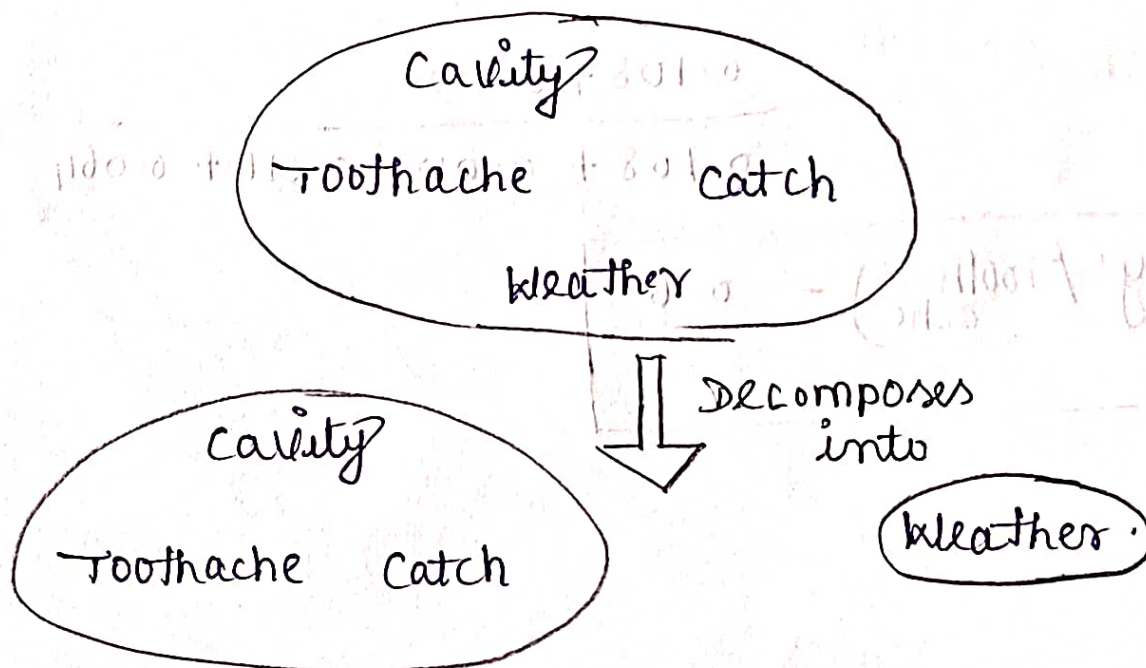 Cavity
Toothache Catch
Weather
Decomposes
into
Cavity
Toothache Catch
Weather.